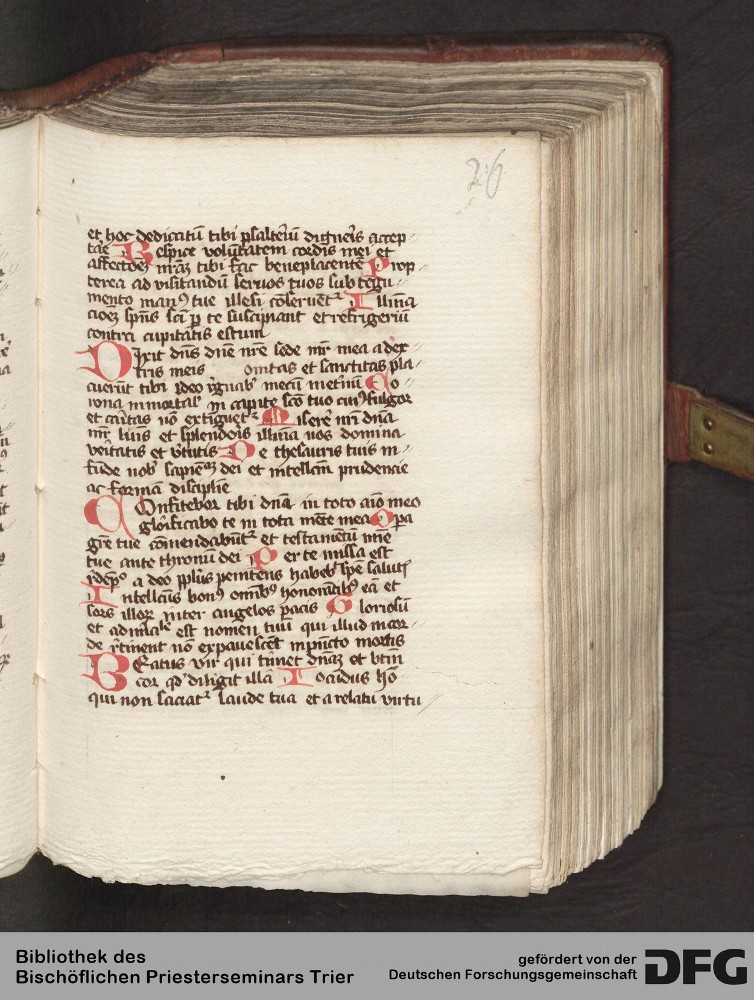 26
et hoc dedicatū tibi psalteriū digneris accep
tare Respice volūtatem cordis mei et
affectōē meāȝ tibi fac beneplacentē Prop
terea ad visitandū seruos tuos sub tegu
mento manꝰ tue illesi ꝯseruētᷣ Illuīa
cioeȝ spūs scī ꝑ te suscipiant et refrigeriū
contra cupitatis estum
Dixit dn̄s dn̄e nr̄e sede mr̄ mea a dex
tris meis oitas et sanctitas pla
cuerūt tibi Ideo regnabꝰ mecū ī et̄nū Co
rona immortalꝭ in capite scō tuo cuiꝰ fulgor
et cāritas nō extiguetᷣ Miserē mī dn̄a
mr̄ luīs et splendoris illuīa nos domina
veritatis et v̄tutis De thesauris tuis in
fūde nobꝭ sapiēāȝ dei et intellcm̄ prudencie
ac formā disciplīe
Confitebor tibi dn̄a in toto aīo meo
glōrificabo te in tota mēte mea Opa
grē tue cōmendabūtᷣ et testamētū mīe
tue ante thronū dei Per te missa est
rdēpꝰ a deo pplūs penitens habebꝭ spē salutꝭ
Intellcūs bonꝰ omībꝰ honorātibꝰ eā et
sors illorꝝ inter angelos pacis Gloriosū
et admīale est nomen tuū qui illud in cor
de rtinent nō expauescēt in pūcto mortis
Beatus vir qui timet dnāȝ et btm̄
cor qd̓ diligit illā Iocūdus hō
qui non saciatᷣ laude tua et a relatū virtu
Bibliothek des
Bischöflichen Priesterseminars Trier
gefördert von der
Deutschen Forschungsgemeinschaft
DFG